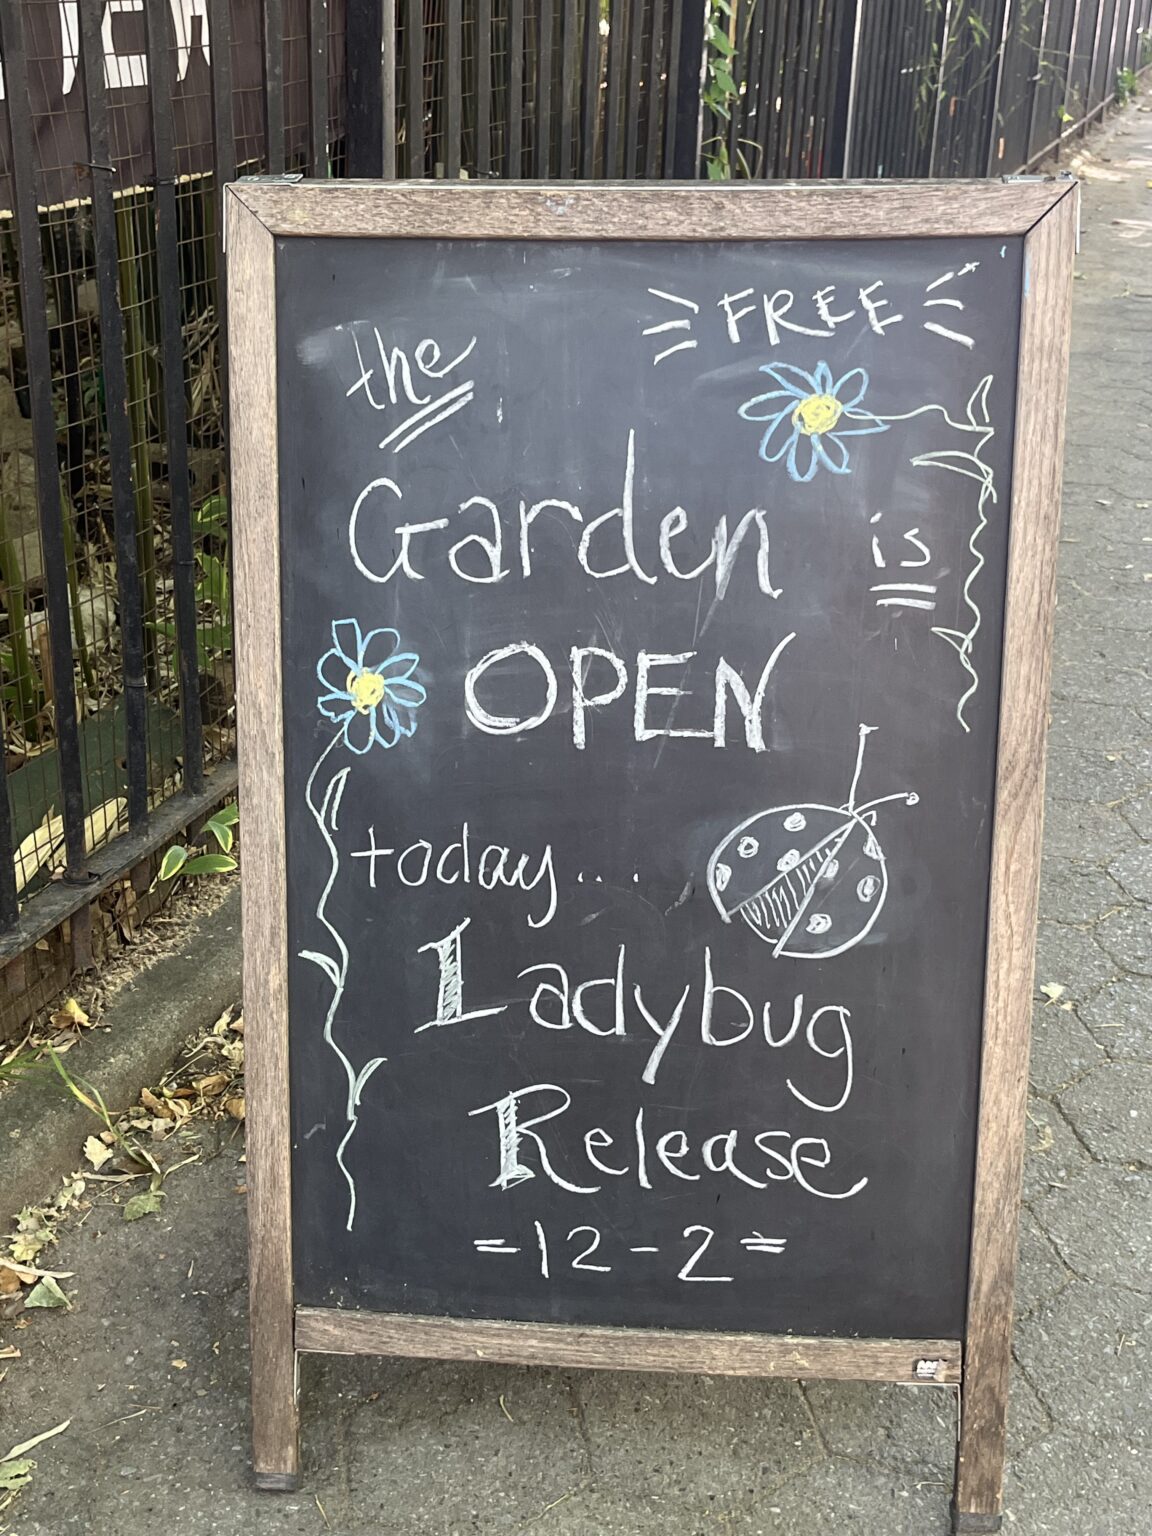 FREE
the
Garden is
OPEN
today...
Ladybug
Release
=12-2=